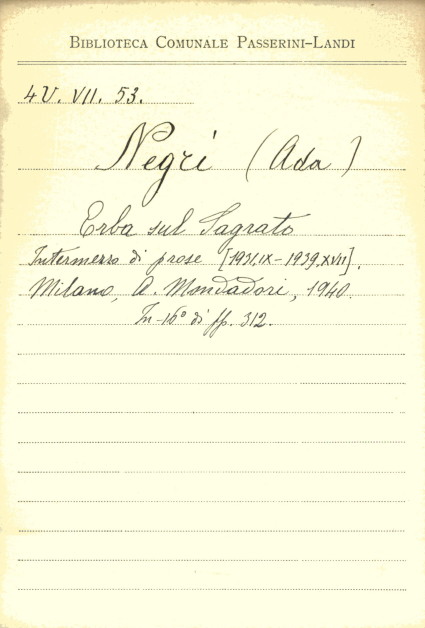 Biblioteca Comunale Passerini-Landi
4U. VII. 53.
Negri (Ada)
Erba sul Sagrato
Intermezzo di prose [1931,IX-1939,XVII].
Milano, A. Mondadori, 1940.
In-16° di pp. 312.